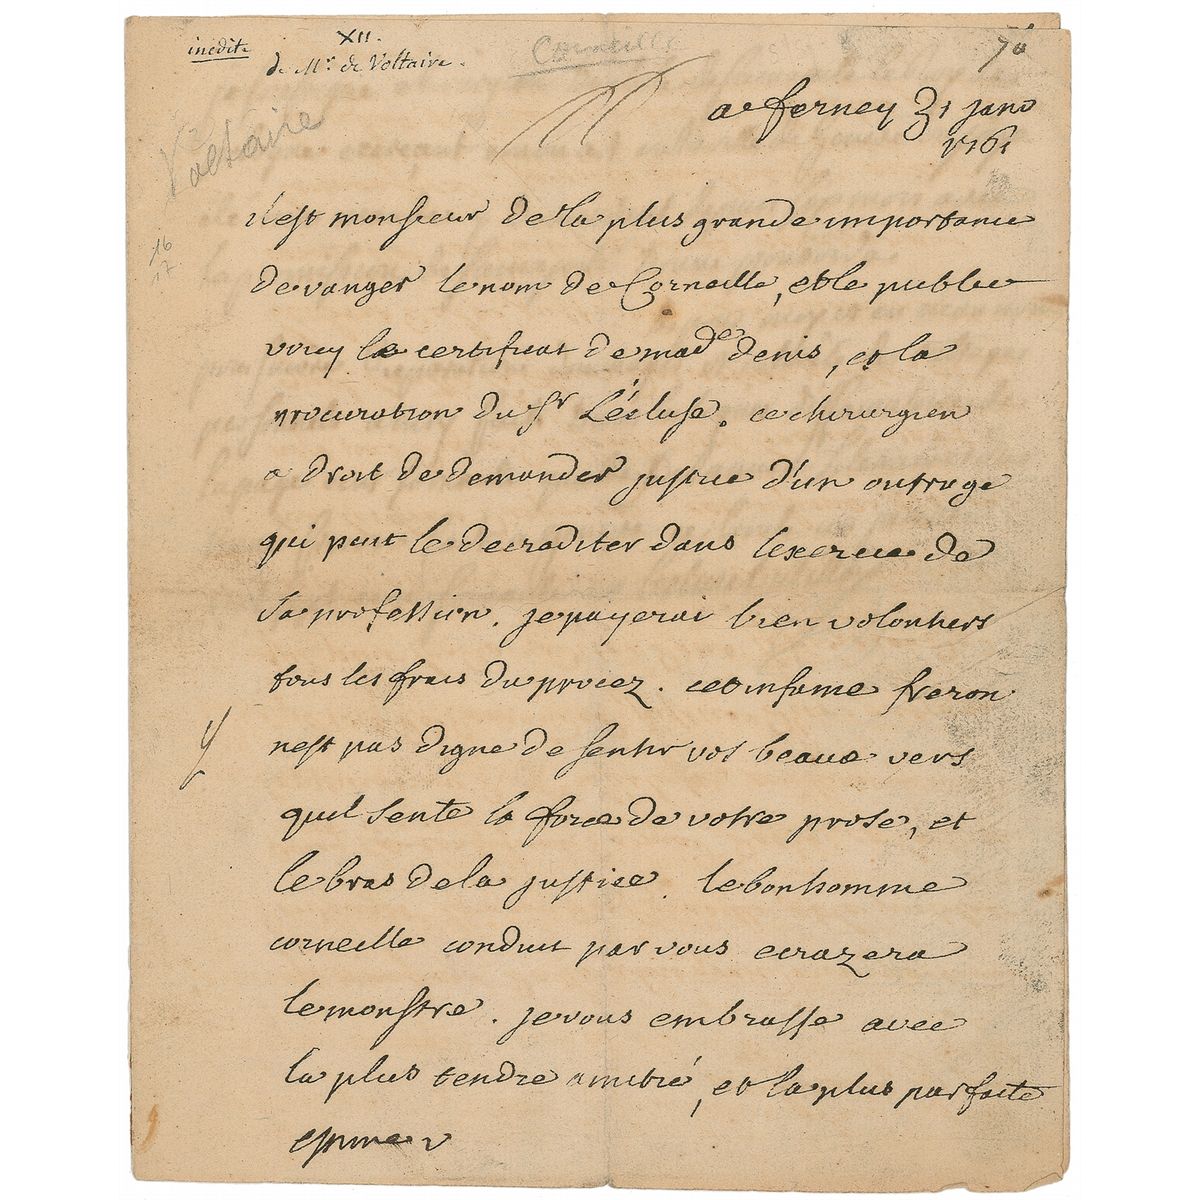 inédite
XII.
de Mr. de Voltaire.
Corneille
Voltaire
16
17
a ferney 31 janv
1761
il est monsieur de la plus grande importance
de vanger le nom de Corneille, et le public
voicy le certificat de made denis, et la
procuration du Sr L'écluse. ce chirurgien
a droit de demander justice d'un outrage
qui peut le decraditer dans lexercice de
sa profession. je payerai bien volontiers
tous les frais du procez. cet infame freron
nest pas digne de sentir vos beaux vers
quil sente la force de votre prose, et
le bras de la justice. le bonhomme
corneille conduit par vous ecrazera
le monstre. je vous embrasse avec
la plus tendre amitié, et la plus parfaite
estime V